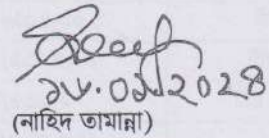 ১৮.০১.২০২৪
(নাহিদ তামান্না)